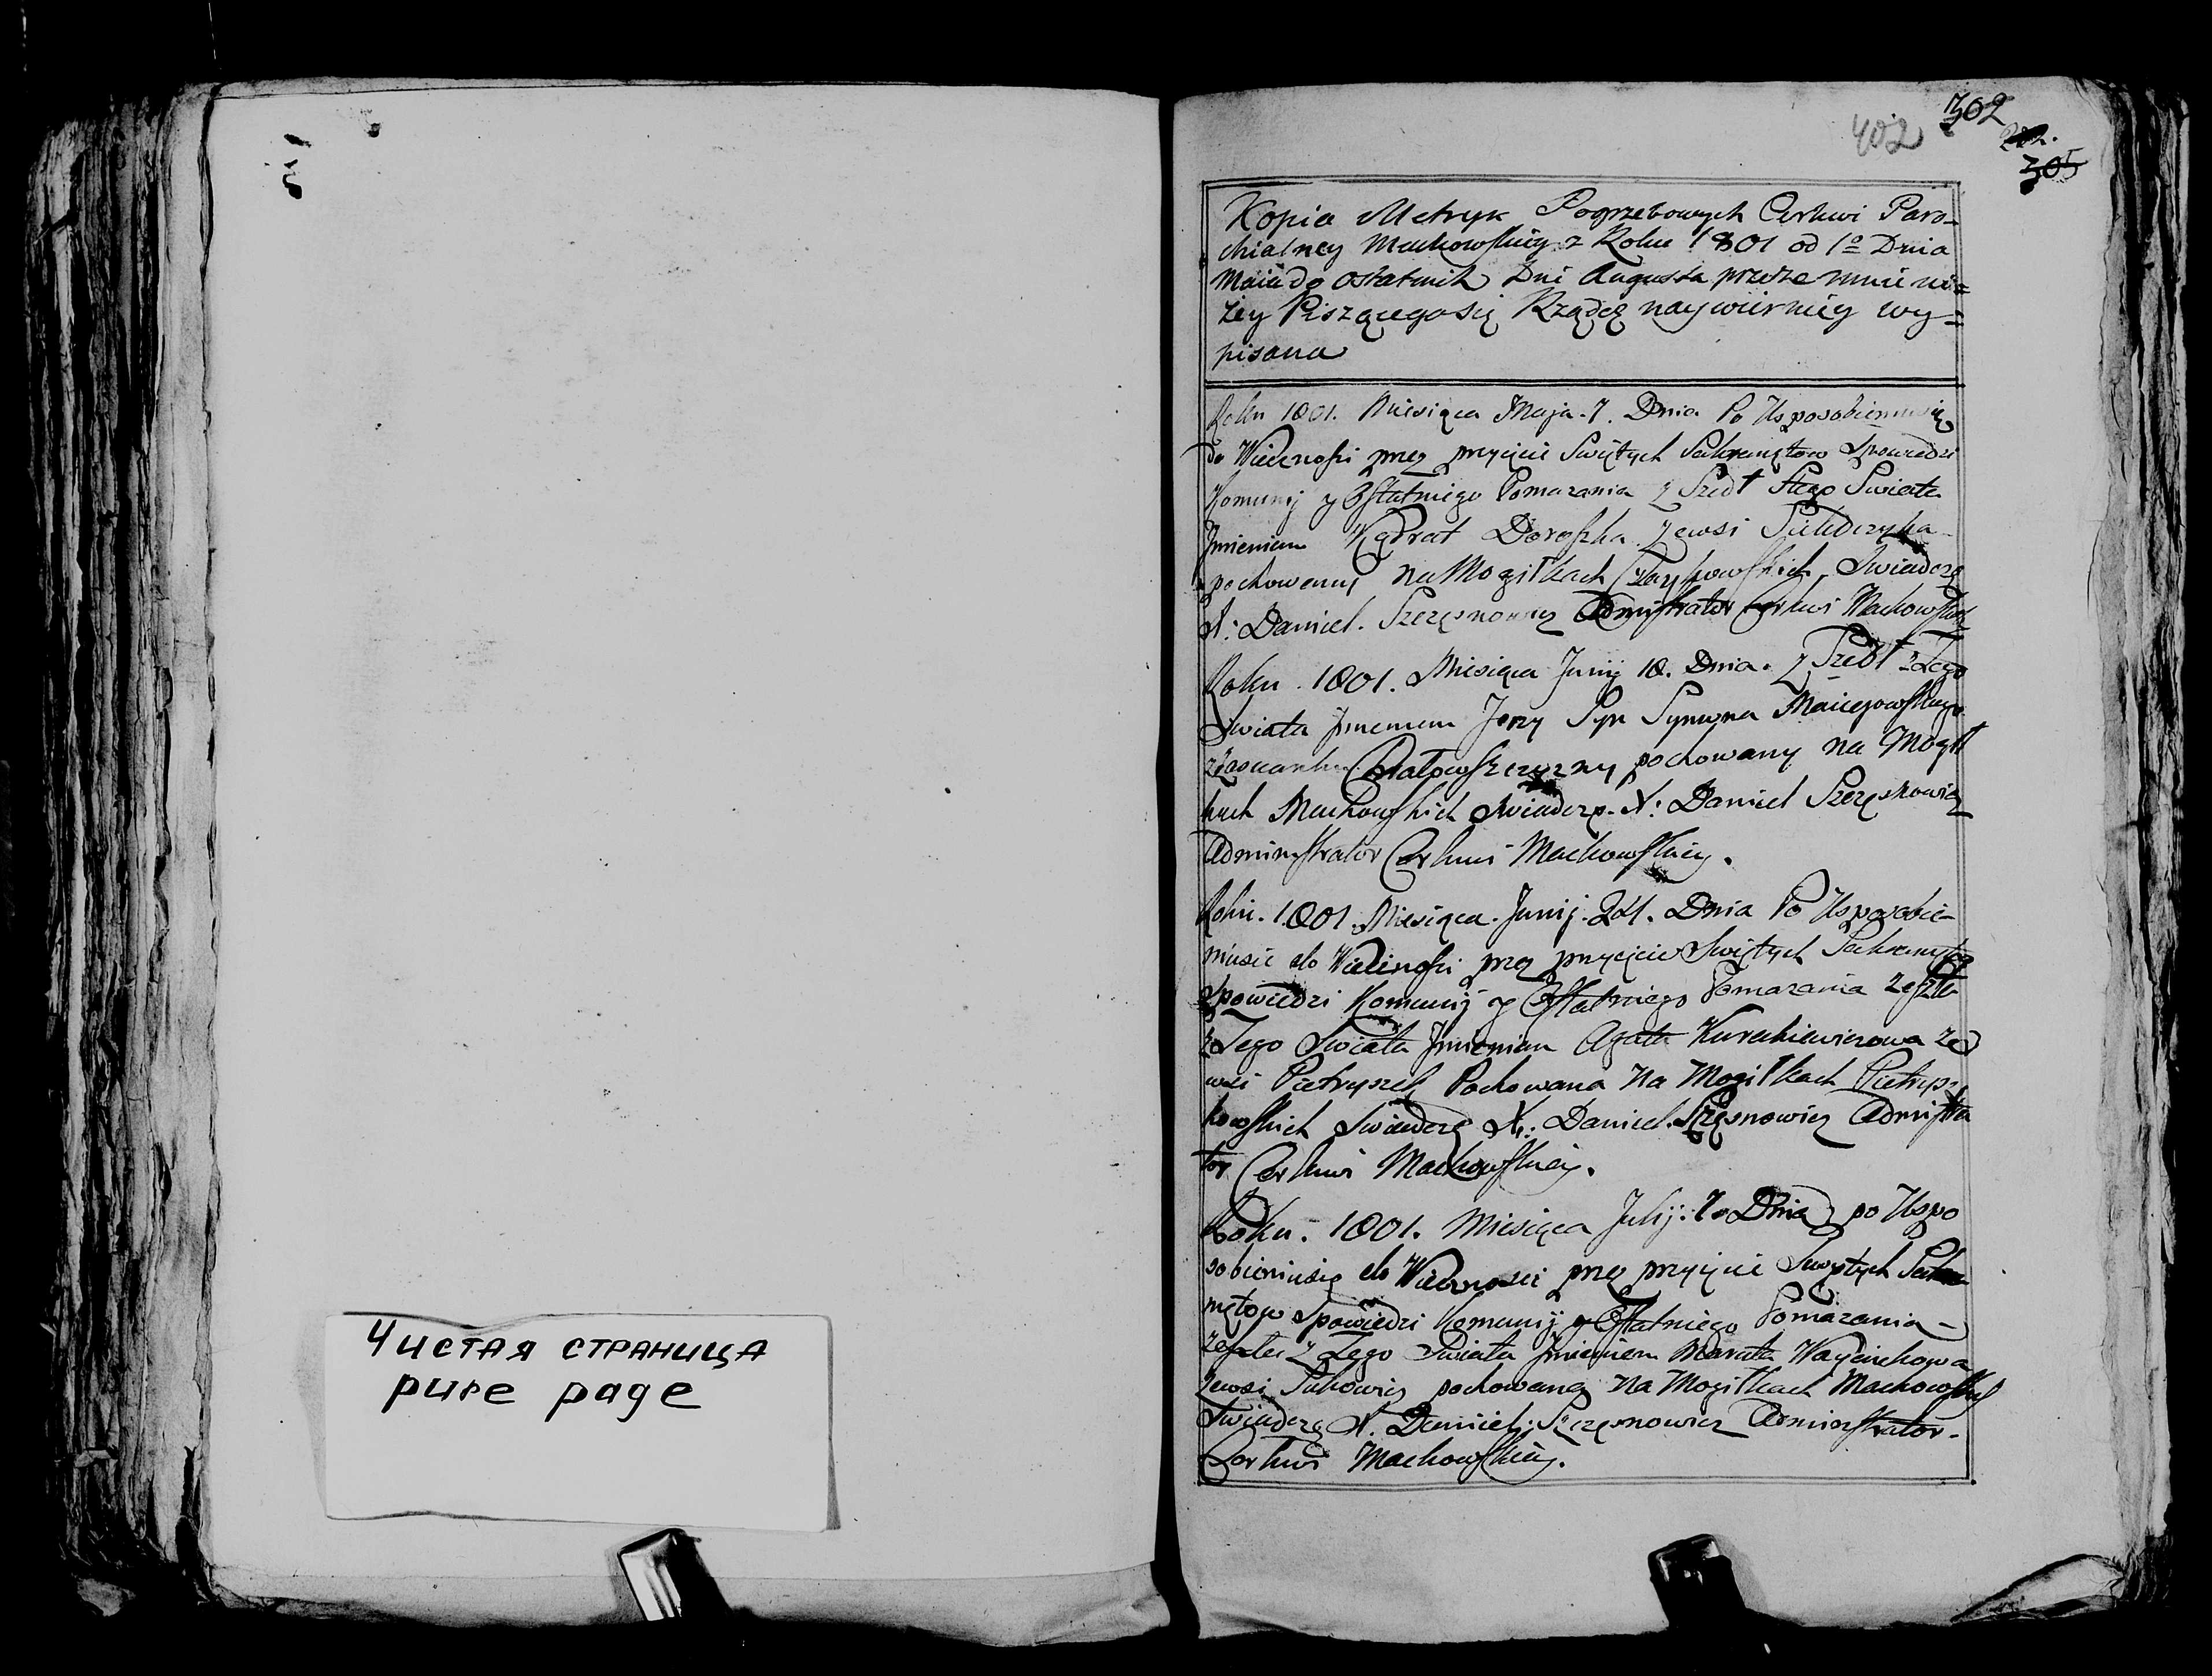 402 302
202.
305
Kopia Metryk Pogrzebowych Cerkwi Paro-
chialney Machowskiey z Roku 1801 od 1º Dnia
Maia do ostatnich Dni Augusta przeze mnie ni=
zey Piszącegosię Rządcę naywierniey wy=
pisana
Roku 1801. Miesiąca Maja. 7. Dnia Po Usposobieniusię
do Wiecznosci przez przyięcie Swiętych Sakramętow Spowiedzi
Komunij y Ostatniego Pomazania z Szedł Stego Swiata
Jmieniem Kądrat Doroszka zewsi
pochowany na Mogiłkach Swiadczę
X: Daniel. Szczęsnowicz Administrator Cerkwi Machowskiey
Roku. 1801. Miesiąca Junij 18. Dnia. z Szedł z Tego
Swiata Jmieniem Jerzy Syn Symona Maiejowskiego
pochowany na Mogił
kach Machowskich Swiadczę. X: Daniel Szczęsnowicz
Administrator Cerkwi Machowskiey.
Roku. 1801. Miesiąca. Junij. 24. Dnia Po Usposobie-
niusie do Wiecznosci przez przyięcie Swiętych Sakramętow
Spowiedzi Komunij y Ostatniego Pomazania zeszła
z Tego Swiata Jmieniem Agata Kurakiewiczowa ze
wsi Pietryszek Pochowana na Mogiłkach Pietrysz
kowskich Swiadczę X: Daniel. Szczęsnowicz Administra
tor Cerkwi Machowskiey.
Roku. 1801. Miesiąca Julij. 7. Dnia po Uspo
sobieniusię do Wiecznosci przez przyięcie Swiętych Sakra
mętow Spowiedzi Komunij y Ostatniego Pomazania -
zeszła z Tego Swiata Jmieniem Maruta
zewsi pochowana na Mogiłkach Machowskich
Swiadczę X. Daniel: Szczęsnowicz Administrator.
Cerkwi Machowskiey.
Чистая страница
pure page